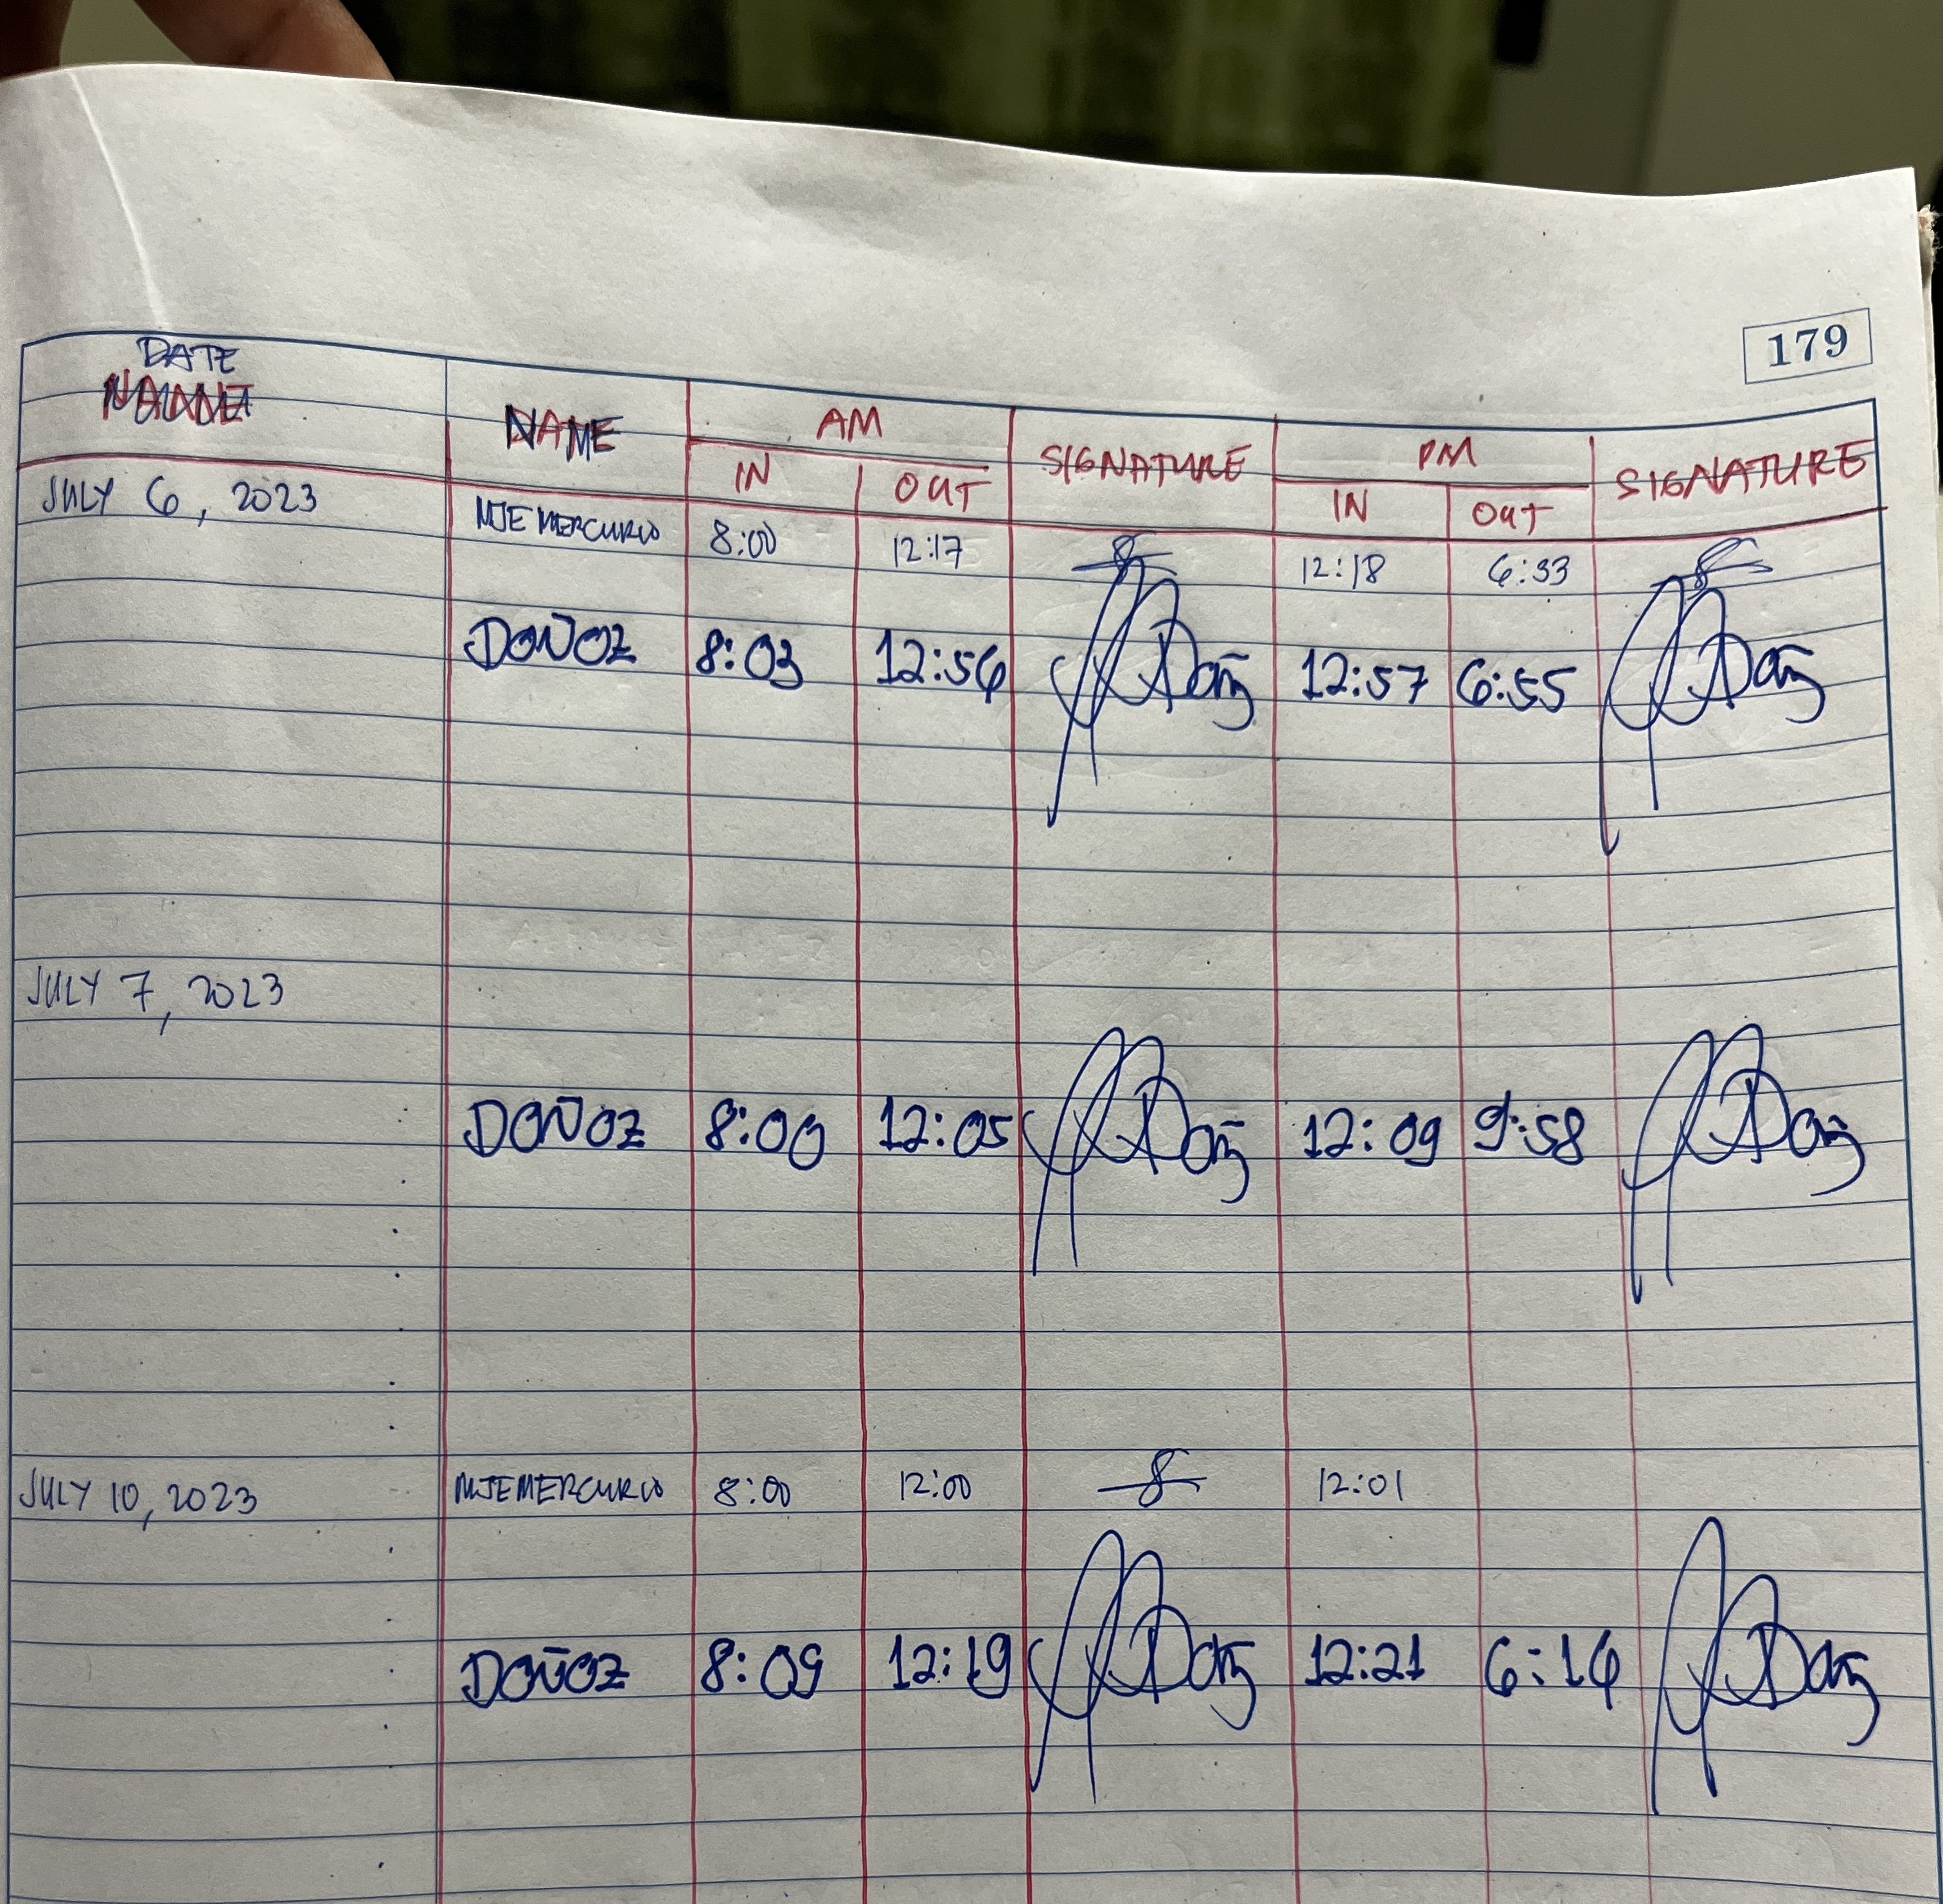 179
DATE
NAME AM SIGNATURE PM SIGNATURE
IN OUT IN OUT
JULY 6, 2023 MJEMERCURIO 8:00 12:17 12:18 6:33
DOÑOZ 8:03 12:56 12:57 6:55
JULY 7, 2023
DOÑOZ 8:00 12:05 12:09 9:58
JULY 10, 2023 MJEMERCURIO 8:00 12:00 12:01
DOÑOZ 8:09 12:19 12:21 6:16